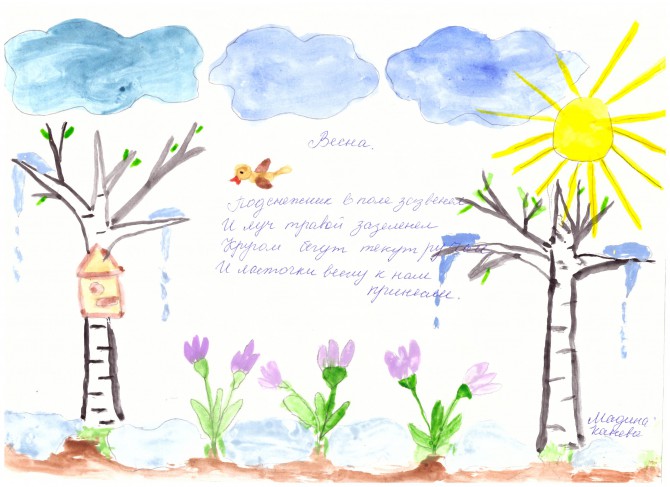 Весна.
Подснежник в поле зазвенел
И луч травой зазеленел
Кругом бегут текут ручьи
И ласточки весну к нам
принесли.
Мадина
Канева